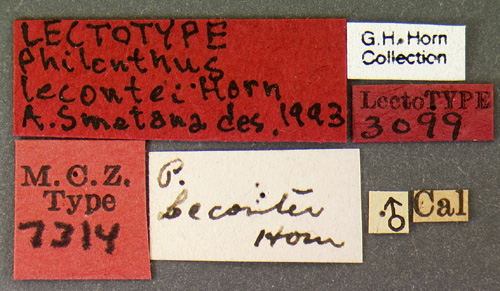 LECTOTYPE
Philonthus
lecontei Horn
A. Smetana des. 1993
G.H. Horn
Collection
LectoTYPE
3099
M.C.Z.
Type
7314
P.
Lecontei
Horn
♂
Cal